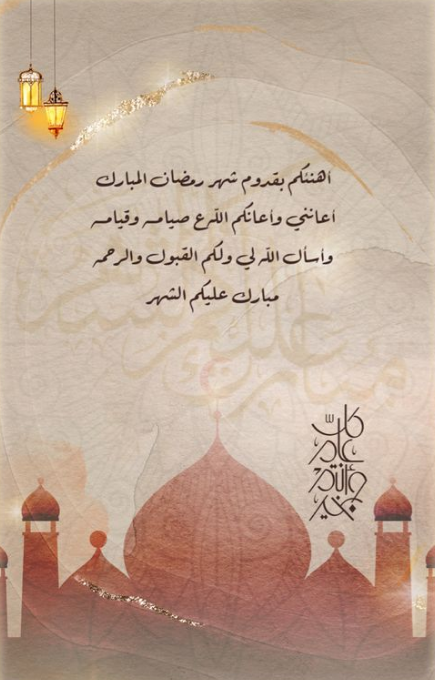 أهنئكم بقدوم شهر رمضان المبارك
أعانني وأعانكم اللّٰه ع صيامه وقيامه
وأسأل اللّٰه لي ولكم القبول والرحمه
مبارك عليكم الشهر
كل
عام
وأنتم
بخير